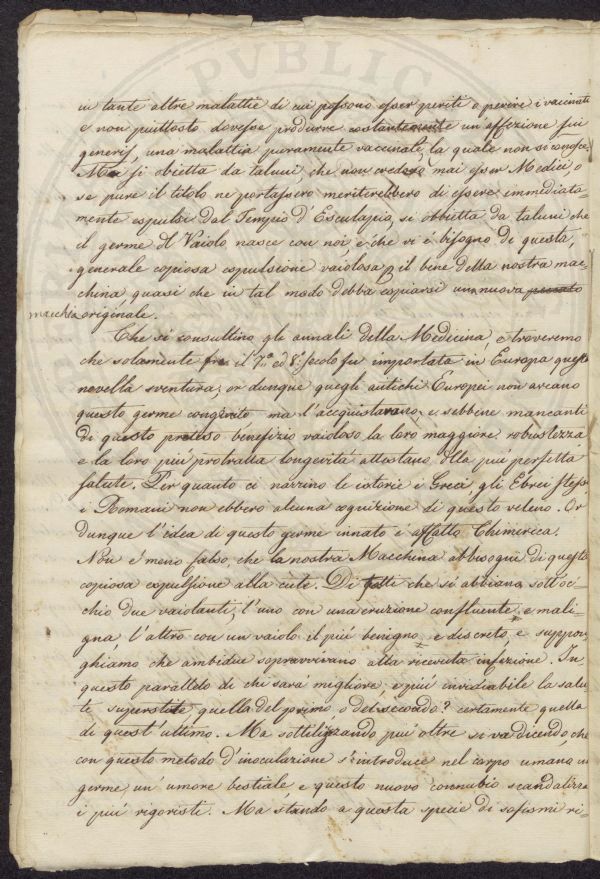 PVBLIC
in tante altre malattie di cui possono esser periti o perire i vaccinati
e non piuttosto dovesse produrre costantemente un'affezione sui
generis, una malattia puramente vaccinale, la quale non si conosce.
Ma si obietta da taluni, che non credorò mai esser Medici, o
se pure il titolo ne portassero meriterebbero di essere immediata-
mente espulsi dal Tempio d'Esculapio, si obbietta da taluni che
il germe del Vaiolo nasce con noi e che vi è bisogno di questa
generale copiosa espulsione vaiolosa p il bene della nostra mac-
china quasi che in tal modo debba espiarsi una nuova peccato
macchia originale.
Che si consultino gli annali della Medicina, e troveremo
che solamente fra il 7.º ed 8.º secolo fu importata in Europa questa
novella sventura; or dunque quegli antichi Europei non aveano
questo germe congenito ma l'acquistarono, e sebbene mancanti
di questo preteso benefizio vaioloso la loro maggiore robustezza
e la loro più protratta longevità attestano della più perfetta
salute. Per quanto ci narrino le istorie i Greci, gli Ebrei stessi
i Romani non ebbero alcuna cognizione di questo veleno. Or
dunque l'idea di questo germe innato è affatto Chimerica.
Non è meno falso, che la nostra Macchina abbisogni di questa
copiosa espulsione alla cute. Di fatti che si abbiano sott'oc-
chio due vaiolanti, l'uno con una eruzione confluente e mali-
gna, l'altro con un vaiolo il più benigno e discreto, e suppon-
ghiamo che ambidue sopravvivano alla ricevuta infezione. In
questo parallelo di chi sarà migliore, e più invidiabile la salu-
te superstite quella del primo o del secondo? certamente quella
di quest'ultimo. Ma sottilizzando più oltre si va dicendo, che
con questo metodo d'inoculazione s'introduce nel corpo umano un
germe un'umore bestiale, e questo nuovo connubio scandalizza
i più rigoristi. Ma stando a questa specie di sofismi ri-